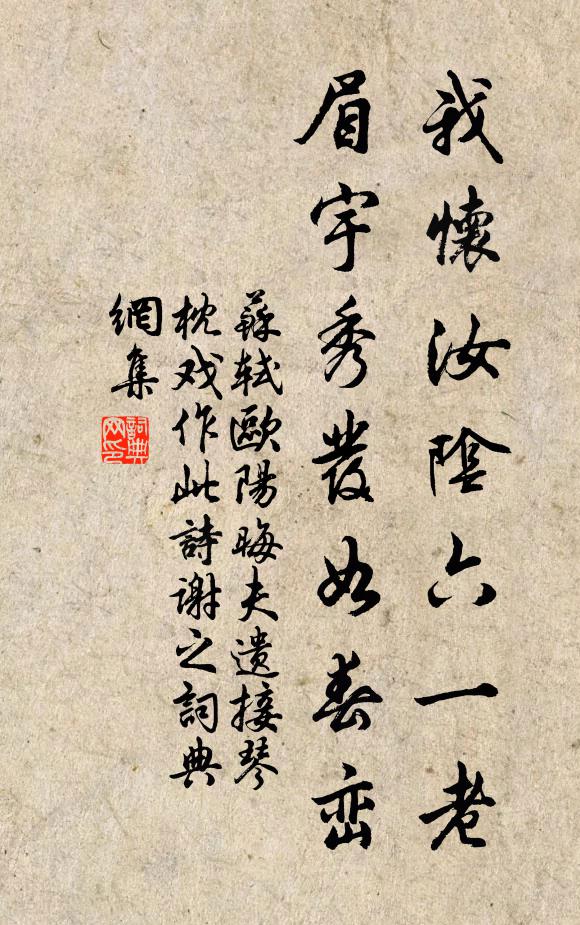 我懷汝陰六一老
眉宇秀發如春巒
蘇軾歐陽晦夫遺接琴
枕戏作此詩谢之詞典
網集
詞典
网印